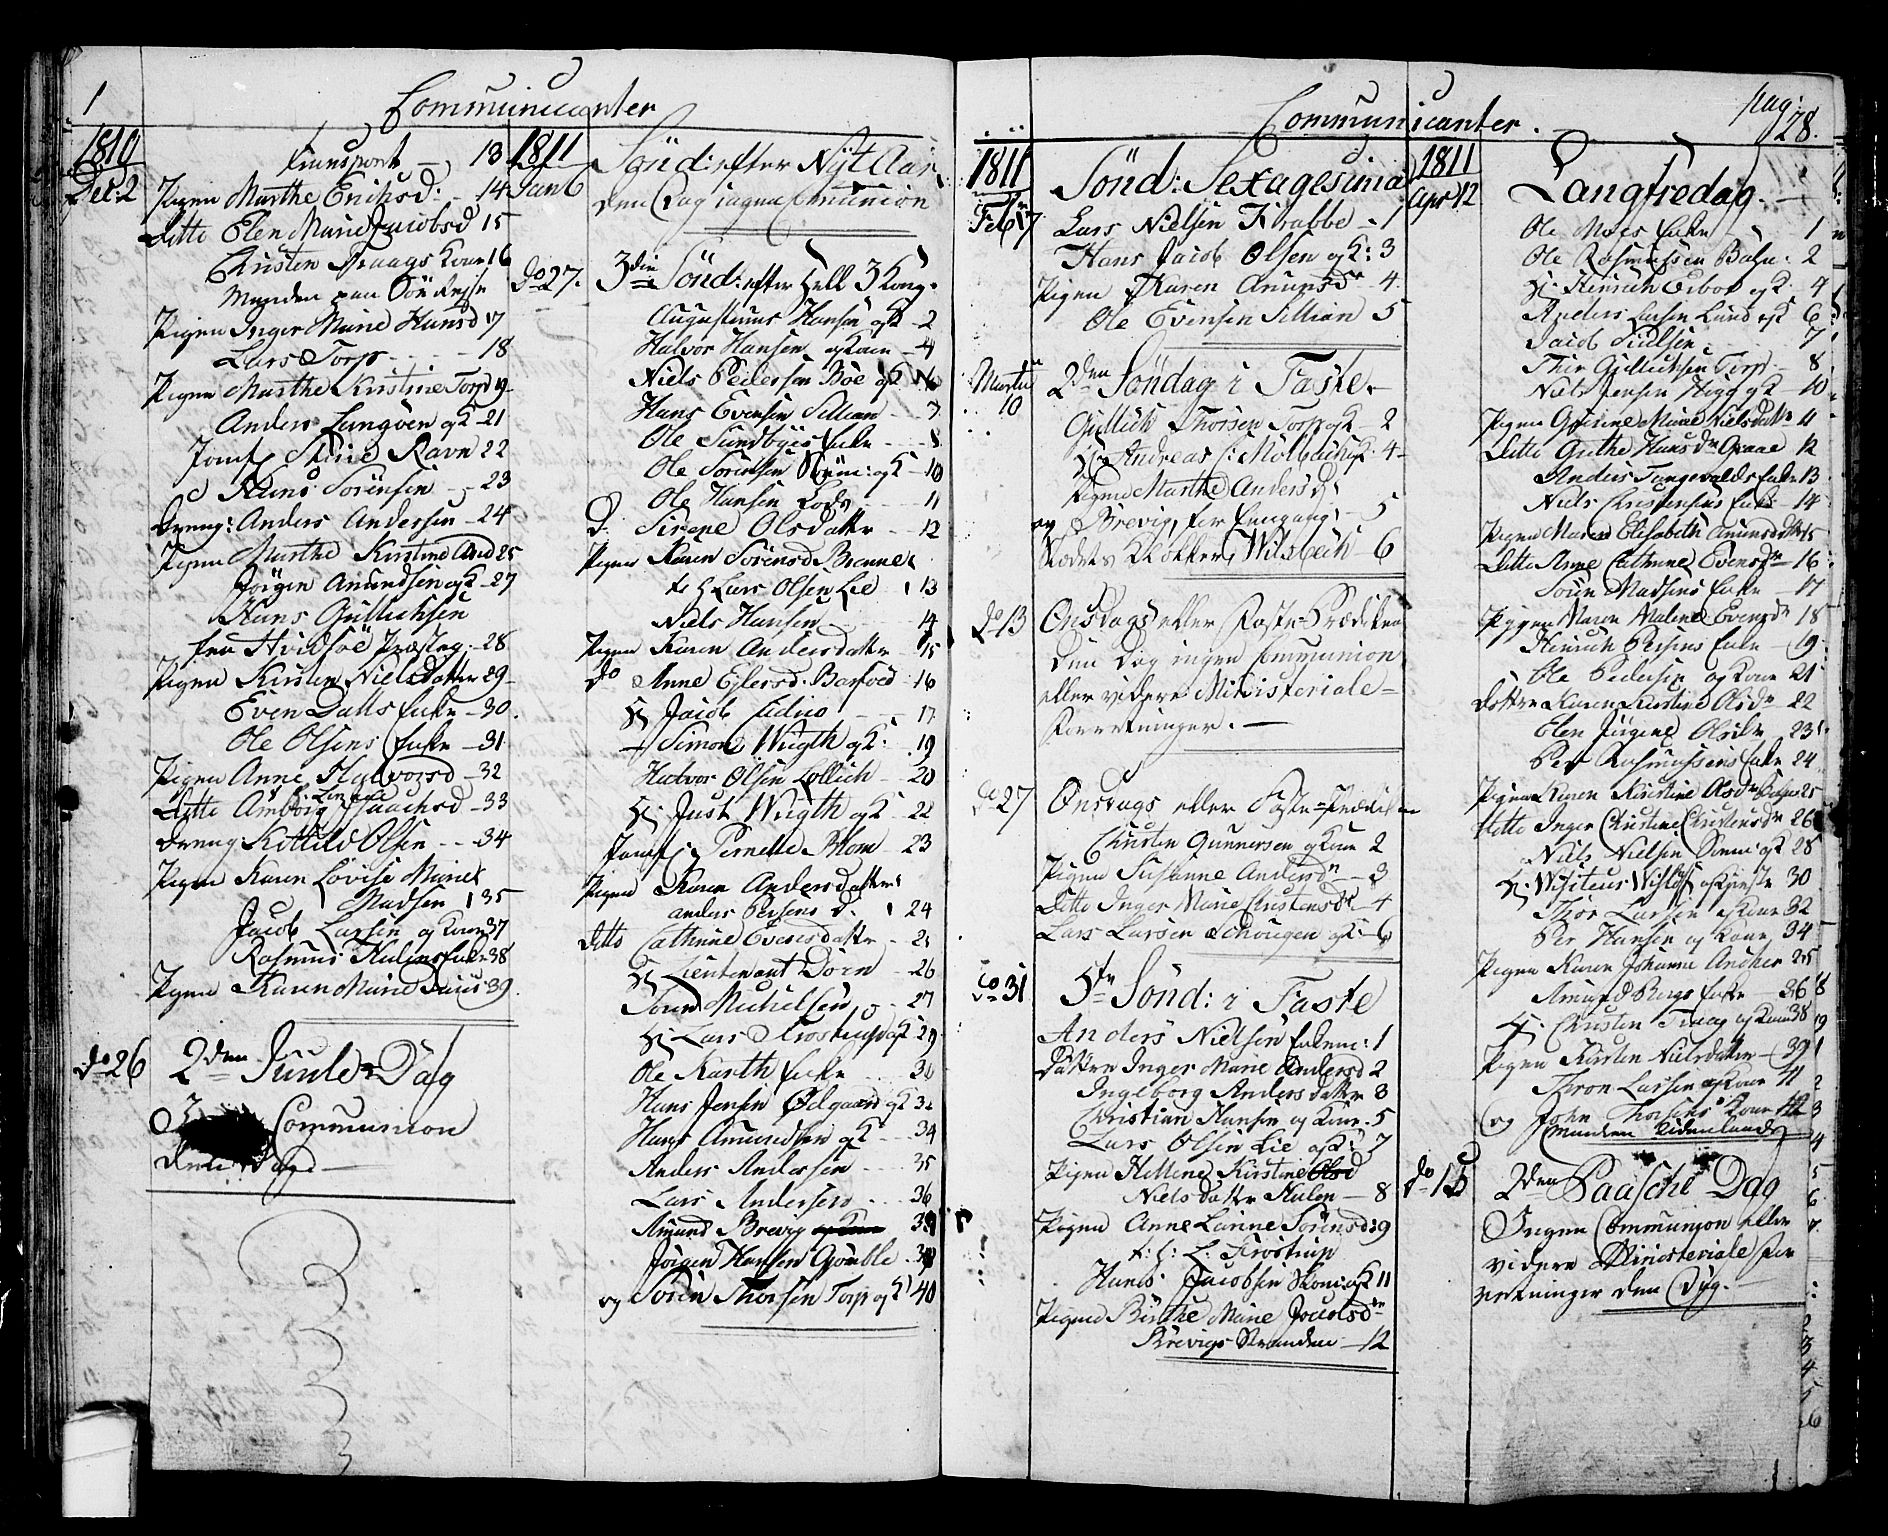 1
Communicanter
1810
Dec: 2
Transport - 13
Pigen Marthe Erichsd: - 14
Ditto Elen Marie Jacobsd 15
Christen Kone 16
Manden paa Söe Rejse
Pigen Inger Marie Hansd 17
Lars Torp - 18
Pigen Marthe Kirstine Torp 19
Anders Langöen og K 21
Jomf Stine Ravn 22
Hans Sörensen - 23
Dreng: Anders Andersen - 24
Pigen Marthe Kirstine And 25
Jörgen Amundsen og K - 27
Hans Gullichsen
fra Hvidsöe Præsteg: - 28
Pigen Kirsten Nielsdatter 29
Even Dalls Enke - 30
Ole Olsens Enke - 31
Pigen Anne Halvorsd - 32
Ditto Amborg Isaachsd - 33
Dreng Kittild Olsen - 34
Pigen Karen Lovise Marie
Madsen 35
Jacob Larsen og Kone 37
Rasmus Hulens Enke 38
Pigen Karen Marie 39
do 26
2den Juule-Dag
Communion
1811
Jan 6
Sönd: efter Nyt Aar
den Dag ingen Communion
do 27.
3die Sönd: efter Hell 3 Kong.
Augustinus Hansen og K - 2
Halvor Hansen og Kone - 4
Niels Pedersen Böe og K 6
Hans Evensen Sillian - 7
Ole Sundbyes Enke - 8
Ole Sörensen og K - 10
Ole Hansen - 11
D. Sirene Olsdatter - 12
Pigen Karen Sörensd Brenne
Lars Olsen Lie 13
Niels Hansen 14
Pigen Karen Andersdatter 15
do Anne Ejlersd. Barfoed 16
H Jacob - 17
Simon Wrigth og K: 19
Halvor Olsen Lollich - 20
H: Just Wrigth og K 22
Jomf: Pernelle Blom - 23
Pigen Karen Andersdatter
Anders Persens D. 24
Ditto Cathrine Eversdatter - 25
H Lieutenant Dorn - 26
Sören Michelsen - 27
H: Lars Trostrup og K 29
Ole Karth Enke 30
Hans Jensen Ödegaard og K 32
Hans Amundsen og K - 34
Anders Andersen - 35
Lars Andersen - 36
Amund Brevig
Jörgen Hansen Gromble
og Sören Thorsen Torp og K 40
pag: 28.
Communicanter.
1811
Feb 17
Sönd: Sexagesima
Lars Nielsen Krabbe - 1
Hans Jacob Olsen og K: 3
Pigen Karen Amunsd - 4
Ole Evensen Sillian 5
Martii
10
2den Söndag i Faste
Gullich Thorsen Torp og K - 2
H Andreas Mölbach og K 4
Pigen Marthe Andersd:
og Brevig, for Eengang: - 5
Stædets Klokker Wilsbech - 6
do 13
Onsdags eller Faste-Prædiken
den Dag ingen Communion
eller videre Ministeriale-
forretninger. -
do 27
Onsdags eller Faste-Prædiken
Christen Gunnersen og Kone 2
Pigen Susanne Andersdr - 3
Ditto Inger Marie Christensdr 4
Lars Larsen Schougen og K: 6
do 31
5te Sönd: i Faste
Anders Nielsen Enkem: 1
Datter Inger Marie Andersd 2
Ingeborg Andersdatter 3
Christian Hansen og Kone 5
Lars Olsen Lie og K: 7
Pigen Hellene Kirstine Olsd
Niels datter Hulen - 8
Pigen Anne Larine Sörensd: 9
t: h: L: Trostrup
Hans Jacobsen og K 11
Pigen Birthe Marie
Brevigs Stranden - 12
1811
Apr 12
Langfredag.
Ole Moes Enke - 1
Ole Rasmussen 2
H: Hinrich og K 4
Anders Larsen Lund og K 6
Jacob 7
Thor Gullichsen Torp - 8
Niels Jensen og K - 10
Pigen Marie Nielsdatter 11
Ditto Grethe Hansdr Graae 12
Anders Tangevalds Enke 13
Niels Christensens Enke - 14
Pigen Maren Elisabeth Amunsdatter 15
Ditto Anne Cathrine Evensdr 16
Sören Madsens Enke - 17
Pigen Maren Malene Evensdr 18
Hinrich Persens Enke - 19
Ole Pedersen og Kone 21
Dotter Karen Kirstine Olsdr 22
Elen Jörgine Olsdr 23
Per Rasmussens Enke 24
Pigen Karen Kirstine Olsdr 25
Ditto Inger Christine Christensdr 26
Niels Nielsen og K 28
H: og Kjereste 30
Thor Larsen og Kone 32
Per Hansen og Kone 34
Pigen Karen Johanne Ancher 35
Amund Bergs Enke - 36
H: Christen og Kone 38
Pigen Kirsten Nielsdatter 39
Thron Larsen og Kone 41
og John Thorsens Kone 42
Manden Udenlands
do 15
2den Paaske Dag
Ingen Communion eller
videre Ministeriale for
retninger den Dag.